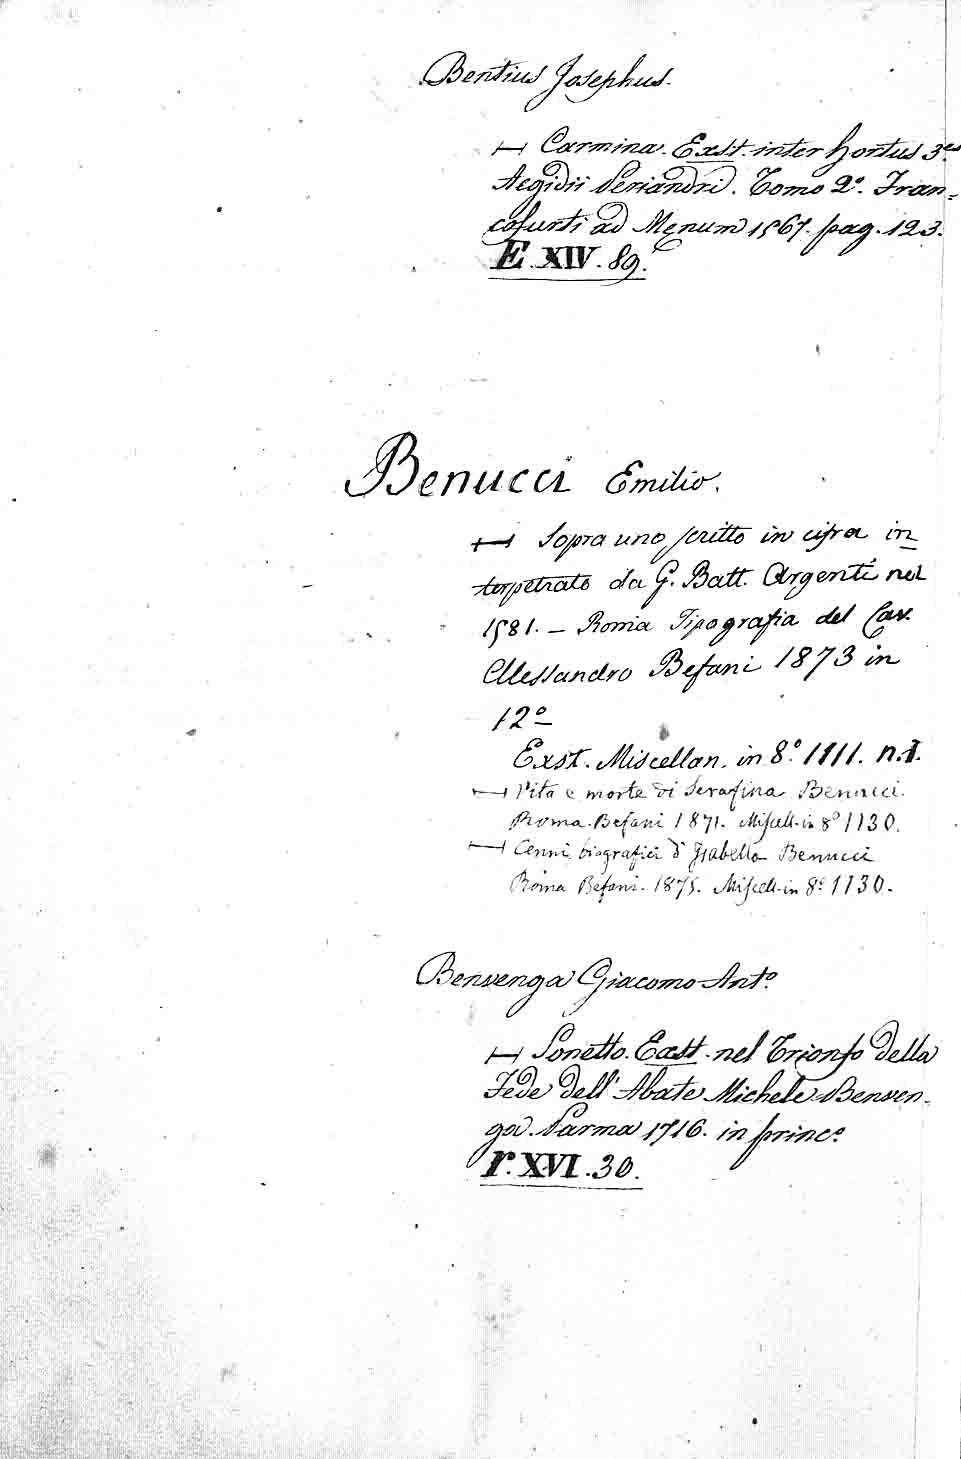 Bentius Josephus.
⊢⊣ Carmina. Exst. inter hortus 3.es
Aegidii Periandri. Tomo 2.º Fran=
cofurti ad Menum 1567. pag. 123.
E. XIV. 89.
Benucci Emilio.
⊢⊣ Sopra uno scritto in cifra in
terpetrato da G. Batt. Argenti nel
1581. — Roma Tipografia del Cav.
Alessandro Befani 1873 in
12º
Exst. Miscellan. in 8.º 1111. n.1.
⊢⊣ Vita e morte di Serafina Benucci.
Roma. Befani 1871. Miscell. in 8º 1130.
⊢⊣ Cenni biografici d' Isabella Benucci
Roma Befani. 1875. Miscell. in 8º 1130.
Benvenga Giacomo Ant.º
⊢⊣ Sonetto. Exst. nel Trionfo della
Fede dell' Abate Michele Benven-
ga. Parma 1716. in princ.º
r. XVI. 30.